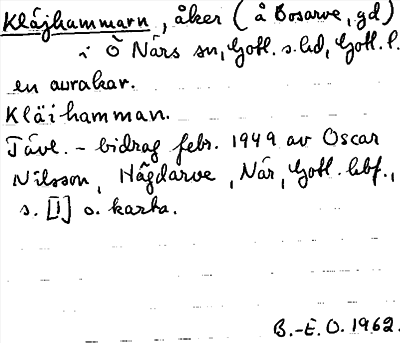 Kläjhammarn, åker (å Bosarve, gd)
i Ö När sn, Gotl. s. hd, Gotl. l.
en avrakar.
Kläihamman.
Tävl.-bidrag febr. 1949 av Oscar
Nilsson, Hägdarve, När, Gotl. hbf.,
s. [1] o. karta.
B.-E. O. 1962.